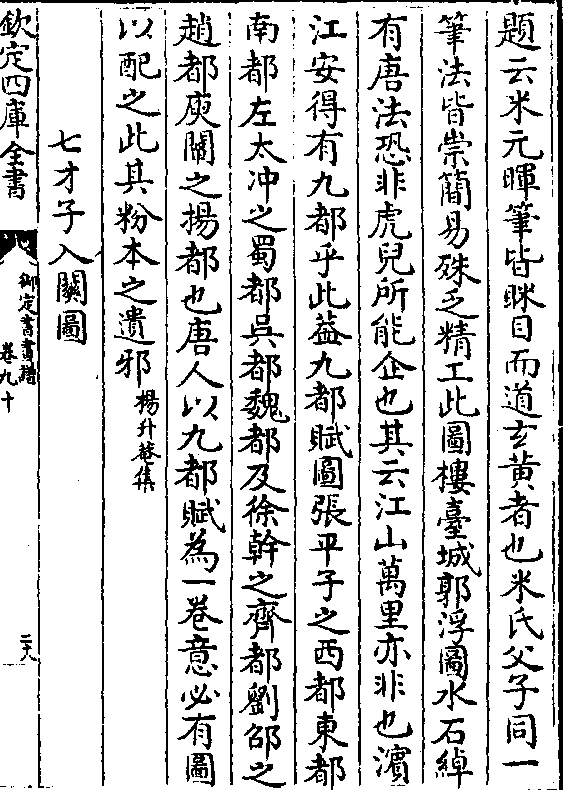 題云米元暉筆皆眯目而道玄黄者也米氏父子同一
筆法皆崇簡易殊乏精工此圖樓臺城郭浮圖水石綽
有唐法恐非虎兒所能企也其云江山萬里亦非也濵
江安得有九都乎此葢九都賦圖張平子之西都東都
南都左太冲之蜀都吳都魏都及徐幹之齊都劉邵之
趙都庾闡之揚都也唐人以九都賦為一卷意必有圖
以配之此其粉本之遺邪楊升菴集
七才子入關圖
欽定四庫全書
御定書畫譜
卷九十
二六